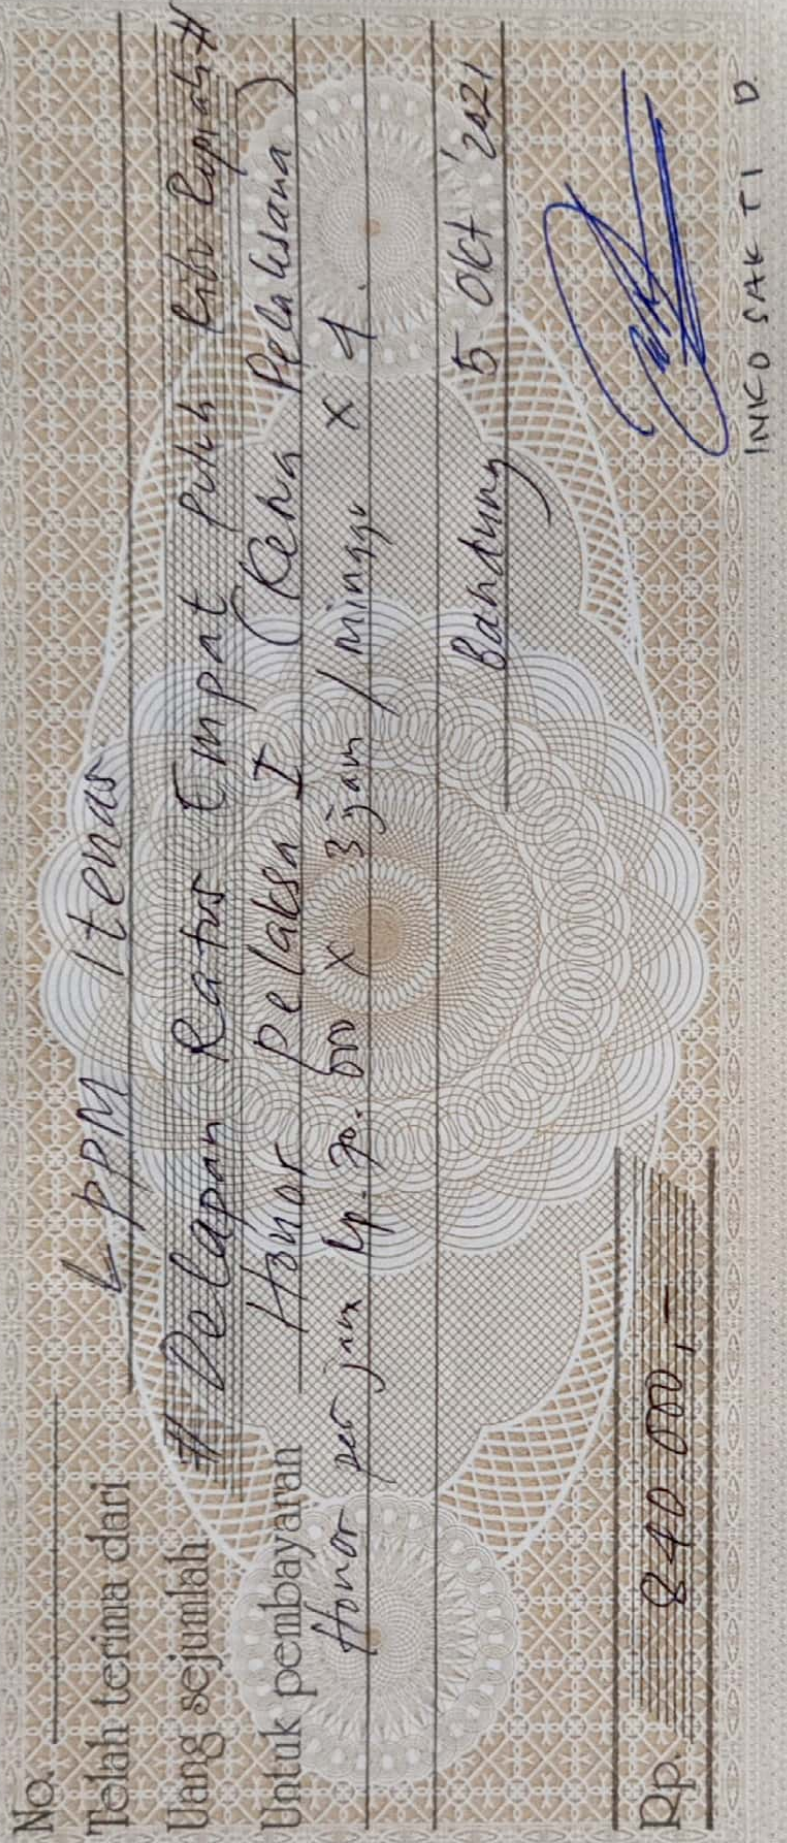 No.
Telah terima dari LPPM Itenas.
Uang sejumlah # Delapan Ratus Empat puluh Ribu Rupiah #
Untuk pembayaran Honor Pelaksa I (Ketua Pelaksana)
Honor per jam Rp. 70.000 x 3 jam / minggu x 4.
Bandung 5 Okt '2021
Rp. 840.000,-
INKO SAKTI D.